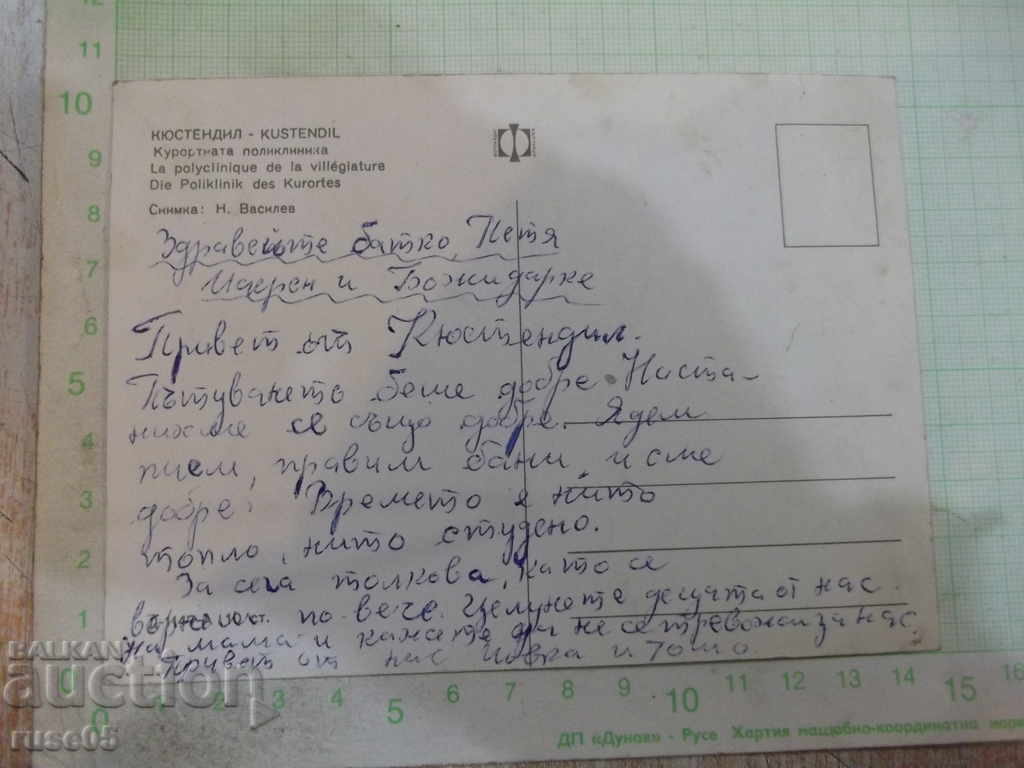 КЮСТЕНДИЛ - KUSTENDIL
Курортната поликлиника
La polyclinique de la villégiature
Die Poliklinik des Kurortes
Снимка: Н. Василев
Здравейте батко, Петя
и Божидарке
Привет от Кюстендил.
Пътуването беше добре. Наста-
нихме се също добре. Ядем
пием, правим бани, и сме
добре. Времето е нито
топло, нито студено.
За сега толкова, като се
по вече. Целунете децата от нас.
на мама и кажете да не се тревожи за нас
Привет от нас и Тошо
BALKAN
auction
ruse05
ДП «Дунав» - Русе Хартия мащабно-координатна
12
11
10
9
8
7
6
5
4
3
2
1
0
0 1 2 3 4 5 6 7 8 9 10 11 12 13 14 15 16